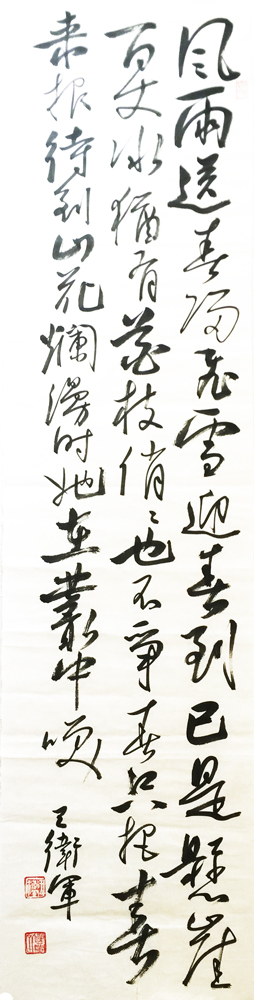 風雨送春歸飛雪迎春到已是懸崖
百丈冰猶有花枝俏俏也不爭春只把春
來报待到山花爛漫時她在叢中笑
王衛軍